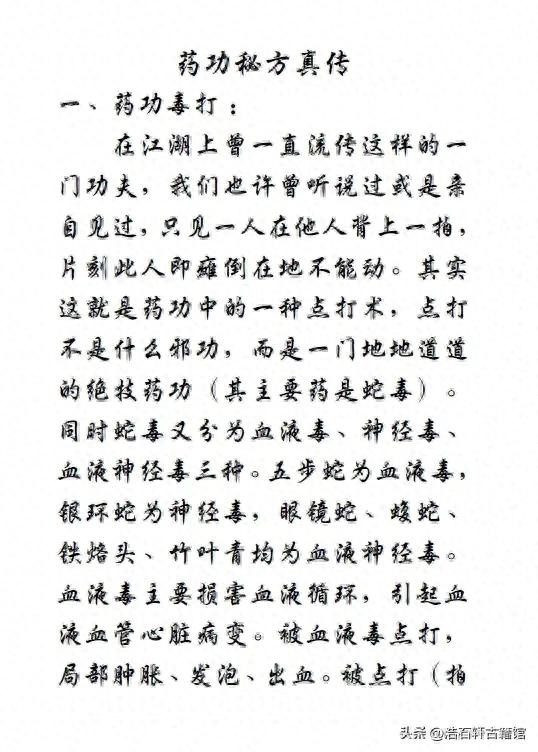 药功秘方真传
一、药功毒打：
在江湖上曾一直流传这样的一
门功夫，我们也许曾听说过或是亲
自见过，只见一人在他人背上一拍，
片刻此人即瘫倒在地不能动。其实
这就是药功中的一种点打术，点打
不是什么邪功，而是一门地地道道
的绝技药功（其主要药是蛇毒）。
同时蛇毒又分为血液毒、神经毒、
血液神经毒三种。五步蛇为血液毒，
银环蛇为神经毒，眼镜蛇、蝮蛇、
铁烙头、竹叶青均为血液神经毒。
血液毒主要损害血液循环，引起血
液血管心脏病变。被血液毒点打，
局部肿胀、发泡、出血。被点打（拍
头条@浩石轩古籍馆